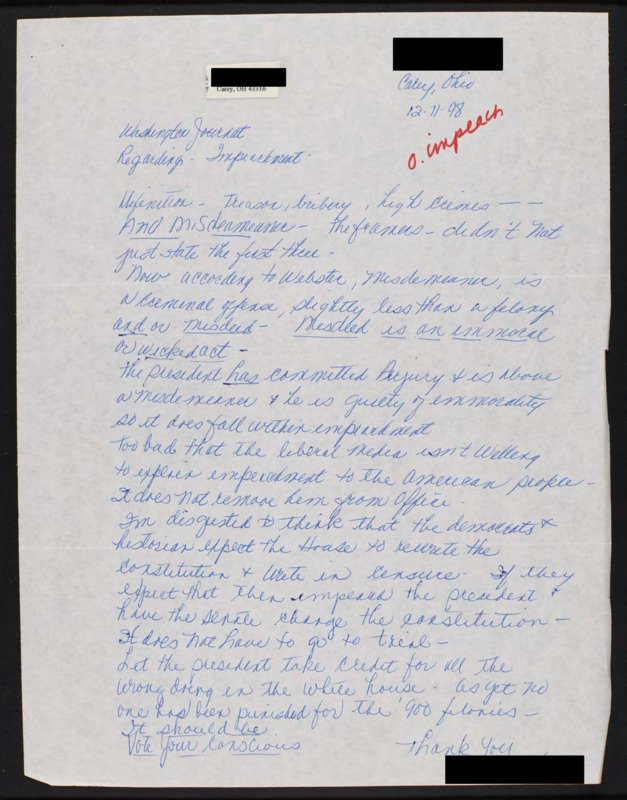 Carey, OH 43316
Carey, Ohio
12-11-98
o. impeach
Washington Journal
Regarding - Impeachment -
Definition - Treason, bribery, high crimes — —
And Misdeameaner - the framers - didn't not
just state the first three -
Now according to Webster, Misdemeaner, is
a criminal offense, slightly less than a felony
and or misdeed - Misdeed is an immoral
or wicked act -
The president has committed Perjury & is above
a misdemeaner & he is guilty of immorality
so it does fall within impeachment
Too bad that the liberal media isn't willing
to explain impeachment to the American people -
It does not remove him from Office.
I'm disgusted to think that the democrats &
historian expect the House to rewrite the
constitution & write in censure. If they
expect that then impeach the president &
have the senate change the constitution -
It does not have to go to trial -
Let the president take credit for all the
wrong doing in the white house - as yet no
one has been punished for the '900 felonies -
It should be
Vote Your Conscious
Thank You